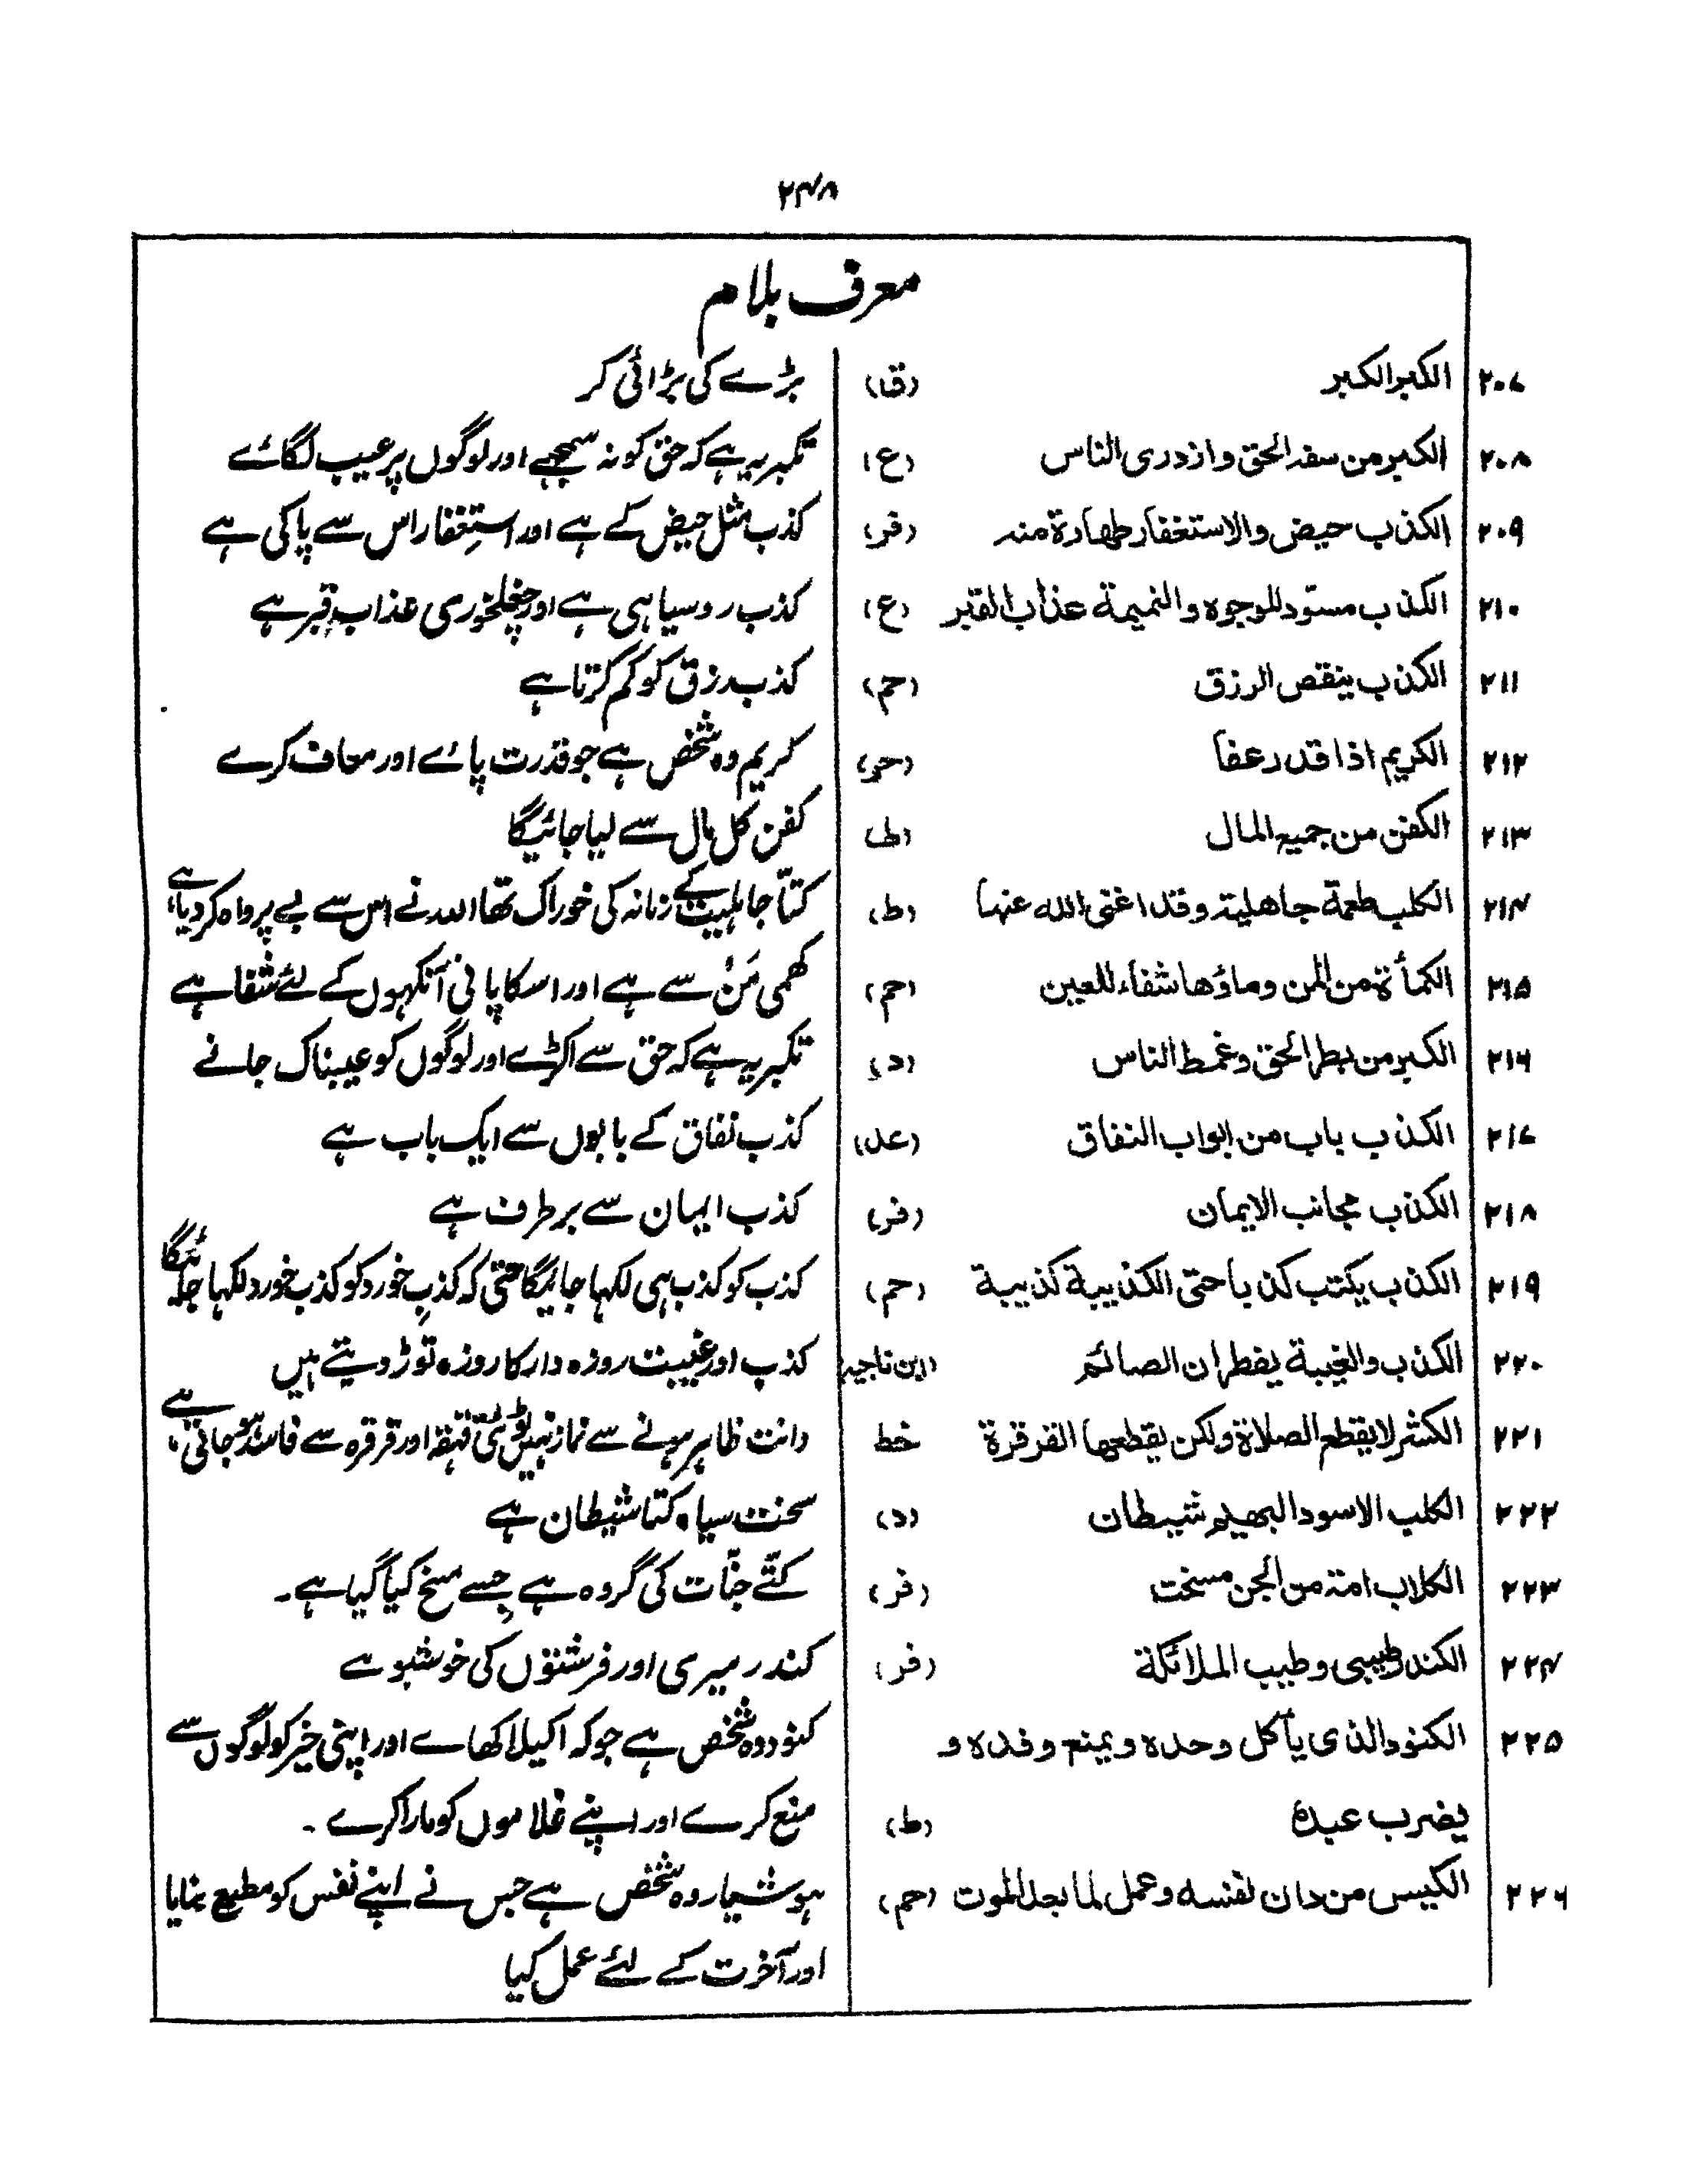 ۲۴۸
معرف بلام
۲۰۷ الکبر الکبر (ق) بڑے کی بڑائی کر
۲۰۸ الکبر من سفہ الحق وازدری الناس (ع) تکبر یہ ہے کہ حق کو نہ سمجھے اور لوگوں پر عیب لگائے
۲۰۹ الکذب حیض والاستغفار طھارۃ منہ (فر) کذب مثل حیض کے ہے اور استغفار اس سے پاکی ہے
۲۱۰ الکذب مسوّد للوجوہ والنمیمۃ عذاب القبر (ع) کذب روسیاہی ہے اور چغلخوری عذاب قبر ہے
۲۱۱ الکذب ینقص الرزق (حم) کذب رزق کو کم کرتا ہے
۲۱۲ الکریم اذا قدر عفا (حم) کریم وہ شخص ہے جو قدرت پائے اور معاف کرے
۲۱۳ الکفن من جمیع المال (ط) کفن کل مال سے لیا جائیگا
۲۱۴ الکلب طعمۃ جاھلیۃ وقد اغنی اللہ عنہا (ط) کتّا جاہلیت کے زمانہ کی خوراک تھا اللہ نے اس سے بے پرواہ کردیا ہے
۲۱۵ الکمأۃ من المن وماؤھا شفاء للعین (حم) کھمی مَنْ سے ہے اور اسکا پانی آنکہوں کے لئے شفا ہے
۲۱۶ الکبر من بطر الحق وغمط الناس (د) تکبر یہ ہے کہ حق سے اکڑے اور لوگوں کو عیبناک جانے
۲۱۷ الکذب باب من ابواب النفاق (عد) کذب نفاق کے بابوں سے ایک باب ہے
۲۱۸ الکذب مجانب الایمان (فر) کذب ایمان سے برطرف ہے
۲۱۹ الکذب یکتب کذبا حتی الکذیبۃ کذیبۃ (حم) کذب کو کذب ہی لکہا جائیگا حتی کہ کذبِ خورد کو کذب خورد لکہا جائیگا
۲۲۰ الکذب والغیبۃ یفطران الصائم (ابن ناجیہ) کذب اور غیبت روزہ دار کا روزہ توڑ دیتے ہیں
۲۲۱ الکشر لا یقطع الصلاۃ ولکن یقطعھا القرقرۃ خط دانت ظاہر ہونے سے نماز نہیں ٹوٹتی قہقہہ اور قرقرہ سے فاسد ہو جاتی ہے
۲۲۲ الکلب الاسود البھیم شیطان (د) سخت سیاہ کتا شیطان ہے
۲۲۳ الکلاب امۃ من الجن مسخت (فر) کتّے جنّات کی گروہ ہے جسے مسخ کیا گیا ہے۔
۲۲۴ الکندر طیبی وطیب الملائکۃ (فر) کندر میری اور فرشتوں کی خوشبو ہے
۲۲۵ الکنود الذی یأکل وحدہ ویمنع وفدہ و کنود وہ شخص ہے جو کہ اکیلا کھائے اور اپنی خیر کو لوگوں سے
یضرب عبدہ (ط) منع کرے اور اپنے غلاموں کو مارا کرے ۔
۲۲۶ الکیس من دان نفسہ وعمل لما بعد الموت (حم) ہوشیار وہ شخص ہے جس نے اپنے نفس کو مطیع بنایا
اور آخرت کے لئے عمل کیا